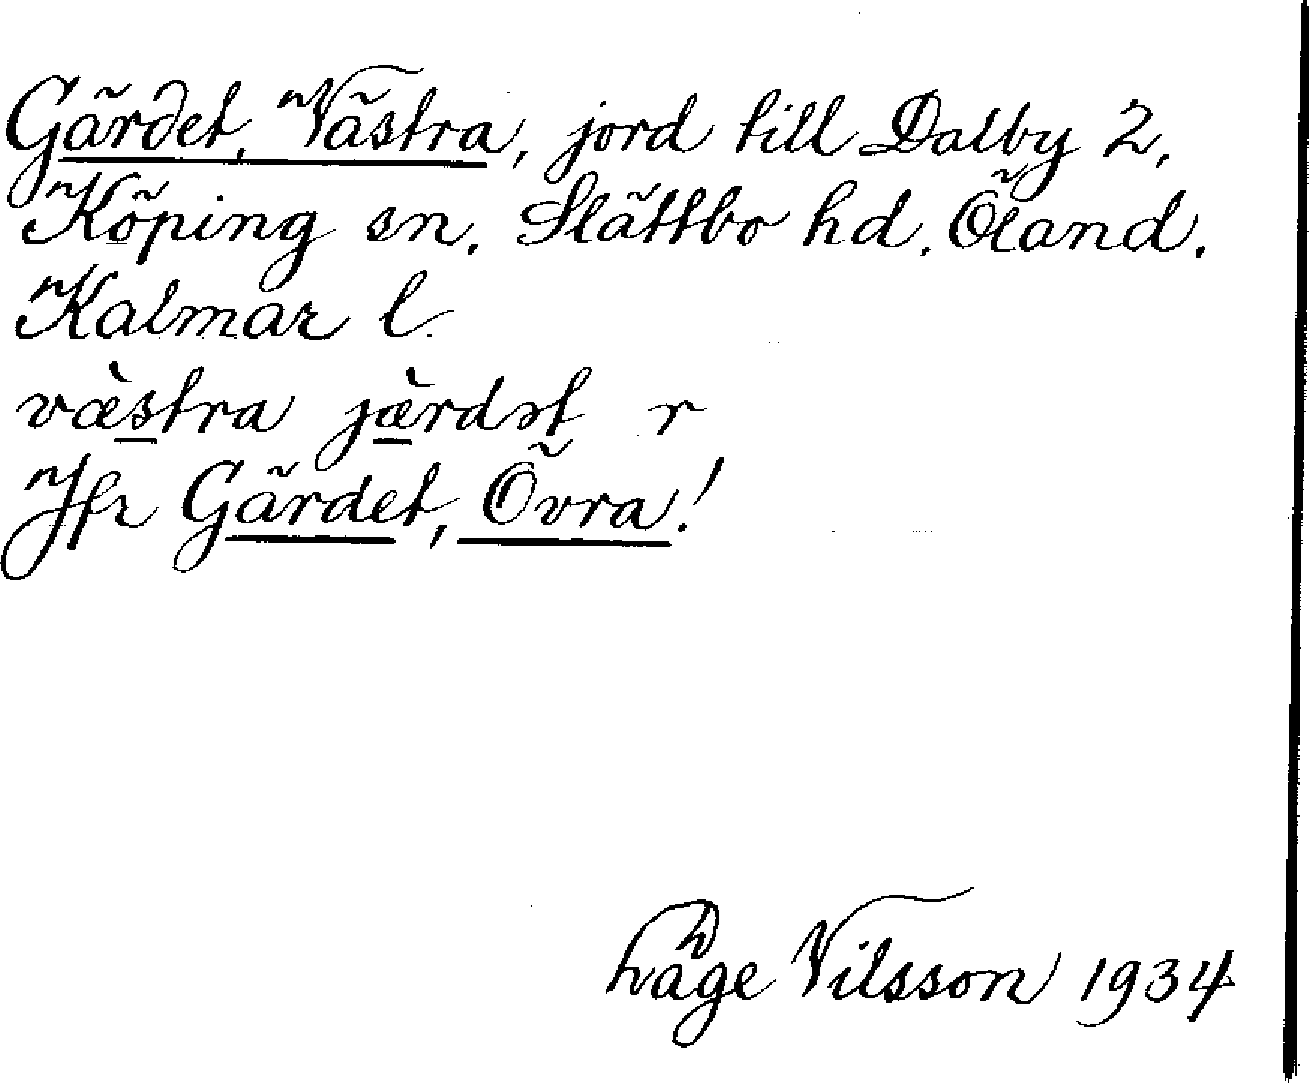 Gärdet, Västra, jord till Dalby 2,
Köping sn. Slättbo hd. Öland.
Kalmar l.
væ̀stra jæ̀rdət r
Jfr Gärdet, Övra!
Låge Nilsson 1934